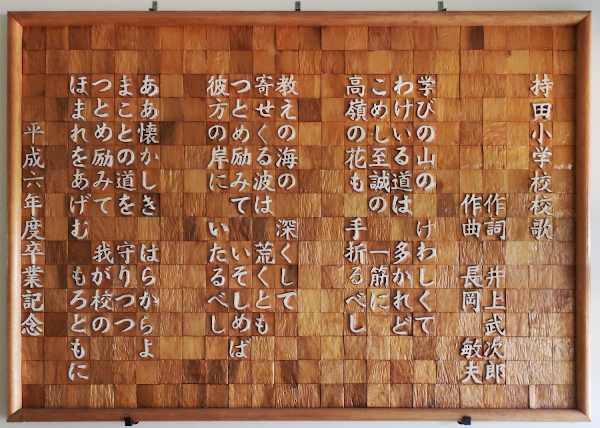 持田小学校校歌
作詞 井上武次郎
作曲 長岡敏夫
学びの山の けわしくて
わけいる道は 多かれど
こめし至誠の 一筋に
高嶺の花も 手折るべし
教えの海の 深くして
寄せくる波は 荒くとも
つとめ励みて いそしめば
彼方の岸に いたるべし
ああ懐かしき はらからよ
まことの道を 守りつつ
つとめ励みて 我が校の
ほまれをあげむ もろともに
平成六年度卒業記念